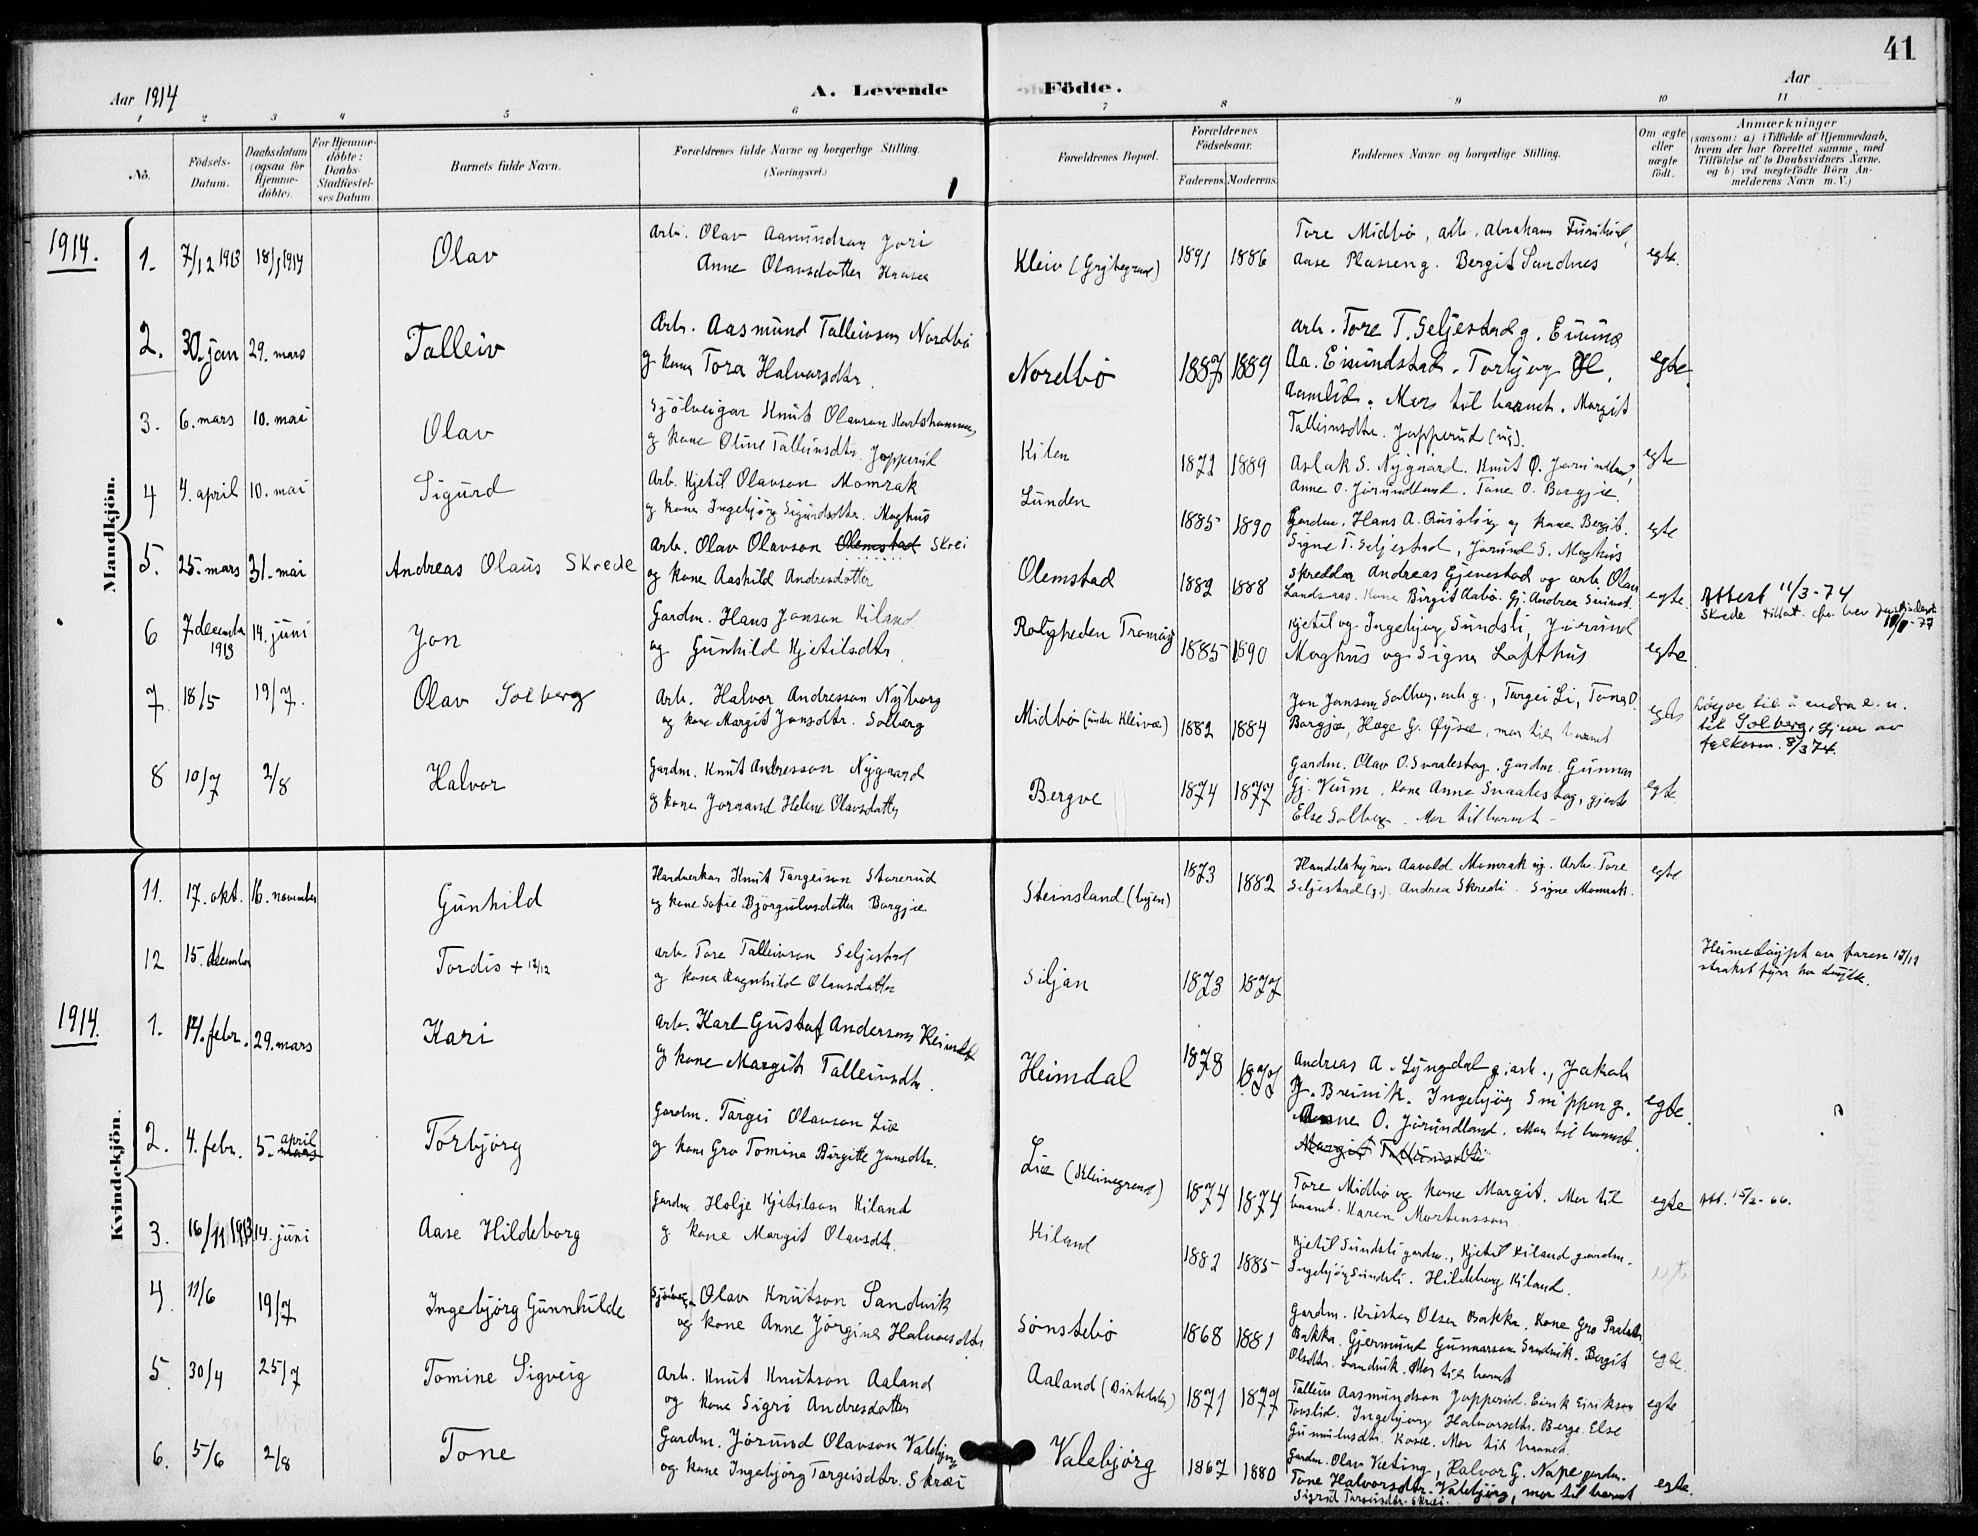 41
Aar 1914
A. Levende
Födte.
Aar
1 2 3 4 5 6 7 8 9 10 11
No.
Födsels-Datum.
Daabsdatum (ogsaa for Hjemme-döbte).
For Hjemme-döbte: Daabs-Stadfæstel-ses Datum.
Barnets fulde Navn.
Forældrenes fulde Navne og borgerlige Stilling.
(Næringsvei.)
Forældrenes Bopæl.
Forældrenes Födselsaar.
Faderens. Moderens.
Faddernes Navne og borgerlige Stilling.
Om ægte eller uægte födt.
Anmærkninger
(saasom: a) i Tilfælde af Hjemmedaab,
hvem der har forrettet samme, med
Tilföielse af to Daabsvidners Navne.
og b) ved uægtefödte Börn An-
melderens Navn m. V.)
Mandkjön.
1914.
1. 7/12 1913 18/1 1914 Olav
Arb. Olav Aamundson Jori
Anne Olavsdatter
Kleiv 1891 1886
Tore Midbö, arb. Abraham
Aase Plassen g. Bergit Sandnes
egte.
2. 30. jan 29. mars Talleiv
Arb. Aasmund Talleivson Nordbö
g kona Tora Halvorsdtr.
Nordbö 1887 1889
Arb. Tore T. Seljestad g.
Aa. Eivindstad. Torbjørg H.
Aamlid. Mor til barnet. Margit
Talleivsdtr. Jopperud (ug).
egte
3. 6. mars 10. mai Olav
Knut Olavson
og kone Oline Talleivsdtr.
Kilen 1872 1889
Aslak S. Nygaard. Knut O.
Anne O. Jørundland. Tone O. Borgjie.
egte
4 4. april 10. mai Sigurd
Arb. Kjetil Olavson Momrak
og kone Ingebjørg Sigurdsdtr. Moghus
Lunden 1885 1890
Gardm. Hans A. Quisling og kone Bergit.
Signe T. Seljestad, Jørund S. Moghus
egte
5. 25. mars 31. mai Andreas Olaus Skrede
Arb. Olav Olavson Olemstad Skrei
og kone Aashild Andresdotter
Olemstad 1882 1888
Skreddar Andreas Gjevestad og arb. Olav
Landsaas. Kone Birgit Aabø. Gj. Andrea
egte
Attest 11/3-74
Skrede
6 7. december 1913 14. juni Jon
Gardm. Hans Jonson Kiland
og Gunhild Kjetilsdtr.
Roligheden Tromøy 1885 1890
Kjetil og Ingebjørg Sundsli, Jørund
Moghus og Signe Lofthus
egte
7. 18/5 19/7. Olav Solberg
Arb. Halvor Andresson Nyborg
og kone Margit Jonsdtr. Solberg
Midbø (under Kleivæ) 1882 1884
Jon Jonson Solberg, arb. g., Targei Li, Tone O.
Borgjie, Hæge G. Øyse, mor til barnet
egte
Løyve til å endra e. n.
til Solberg, gjeve av
fylkesm. 8/3 74.
8 10/7 2/8 Halvor
Gardm. Knut Andresson Nygaard
og kone Jorand Helene Olavsdatter
Bergve 1874 1877
Gardm. Olav O. Svaalestog. Gardm. Gunnar
Gj. Veum. Kone Anne Svaalestog, gjente
Else Solberg. Mor til barnet
egte
Kvindekjön.
11. 17. okt. 16. november Gunhild
Handverkar Knut Targeison Storerud
og kone Sofie Bjørgulvsdatter Borgjie
Steinsland 1873 1882
Handelsbyrar Aavald Momrak ug. Arb. Tore
Seljestad (g.) Andrea Skredi. Signe Momrak.
egte
12 15. december Tordis + 17/12
Arb. Tore Talleivson Seljestad
og kona Ragnhild Olavsdatter
Siljan 1873 1877
Heimedøypt av faren 17/12
strakst fyrr ho døydde.
1914.
1. 14. febr. 29. mars Kari
Arb. Karl Gustaf Anderson Heimdal
og kone Margit Talleivsdtr.
Heimdal 1878 1877
Andreas A. Lyngdal g. arb., Jakob
J. Breivik. Ingebjørg Snippen g.
Anne O. Jørundland. Mor til barnet.
Margit Talleivsdtr
egte.
2. 4. febr. 5. mars april Torbjørg
Gardm. Targei Olavson Lie
g kone Gro Tomine Birgitte Jonsdtr.
Lie (Kleivegrend) 1874 1874
Tore Midbø og kone Margit. Mor til
barnet. Karen Mortensson
egte
Att. 15/2-66.
3. 16/11 1913 14. juni Aase Hildeborg
Gardm. Holje Kjetilson Kiland
g kone Margit Olavsdtr.
Kiland 1882 1885
Kjetil Sundsli gardm., Kjetil Kiland gardm.
Ingebjørg Sundsli. Hildeborg Kiland.
egte
4. 11/6 19/7 Ingebjörg Gunnhilde
Olav Knutson Sandvik
og kone Anne Jørgine Halvorsdtr
Sønstebø 1868 1881
Gardm. Kristen Olsen Bakka. Kone Gro
Bakka. Gjermund Gunnarson Sandvik. Bergit
Olsdtr. Landvik. Mor til barnet
egte.
5. 30/4 25/7 Tomine Sigveig
Arb. Knut Knutson Aaland
og kone Sigri Andresdatter
Aaland 1871 1877
Talleiv Aasmundson Jopperud. Eirik Eirikson
Tovslid. Ingebjørg Halvorsdtr. Berge. Else
Gunnulvsdtr. Kosæ. Mor til barnet.
egte
6. 5/6 2/8 Tone
Gardm. Jørund Olavson Valebjørg
og kone Ingebjørg Targeisdtr. Skræi
Valebjørg 1867 1880
Gardm. Olav Væting, Halvor G. Nape gardm.
Tone Halvorsdtr. Valebjørg, mor til barnet
Sigrid Targeisdtr. Skræi.
egte.